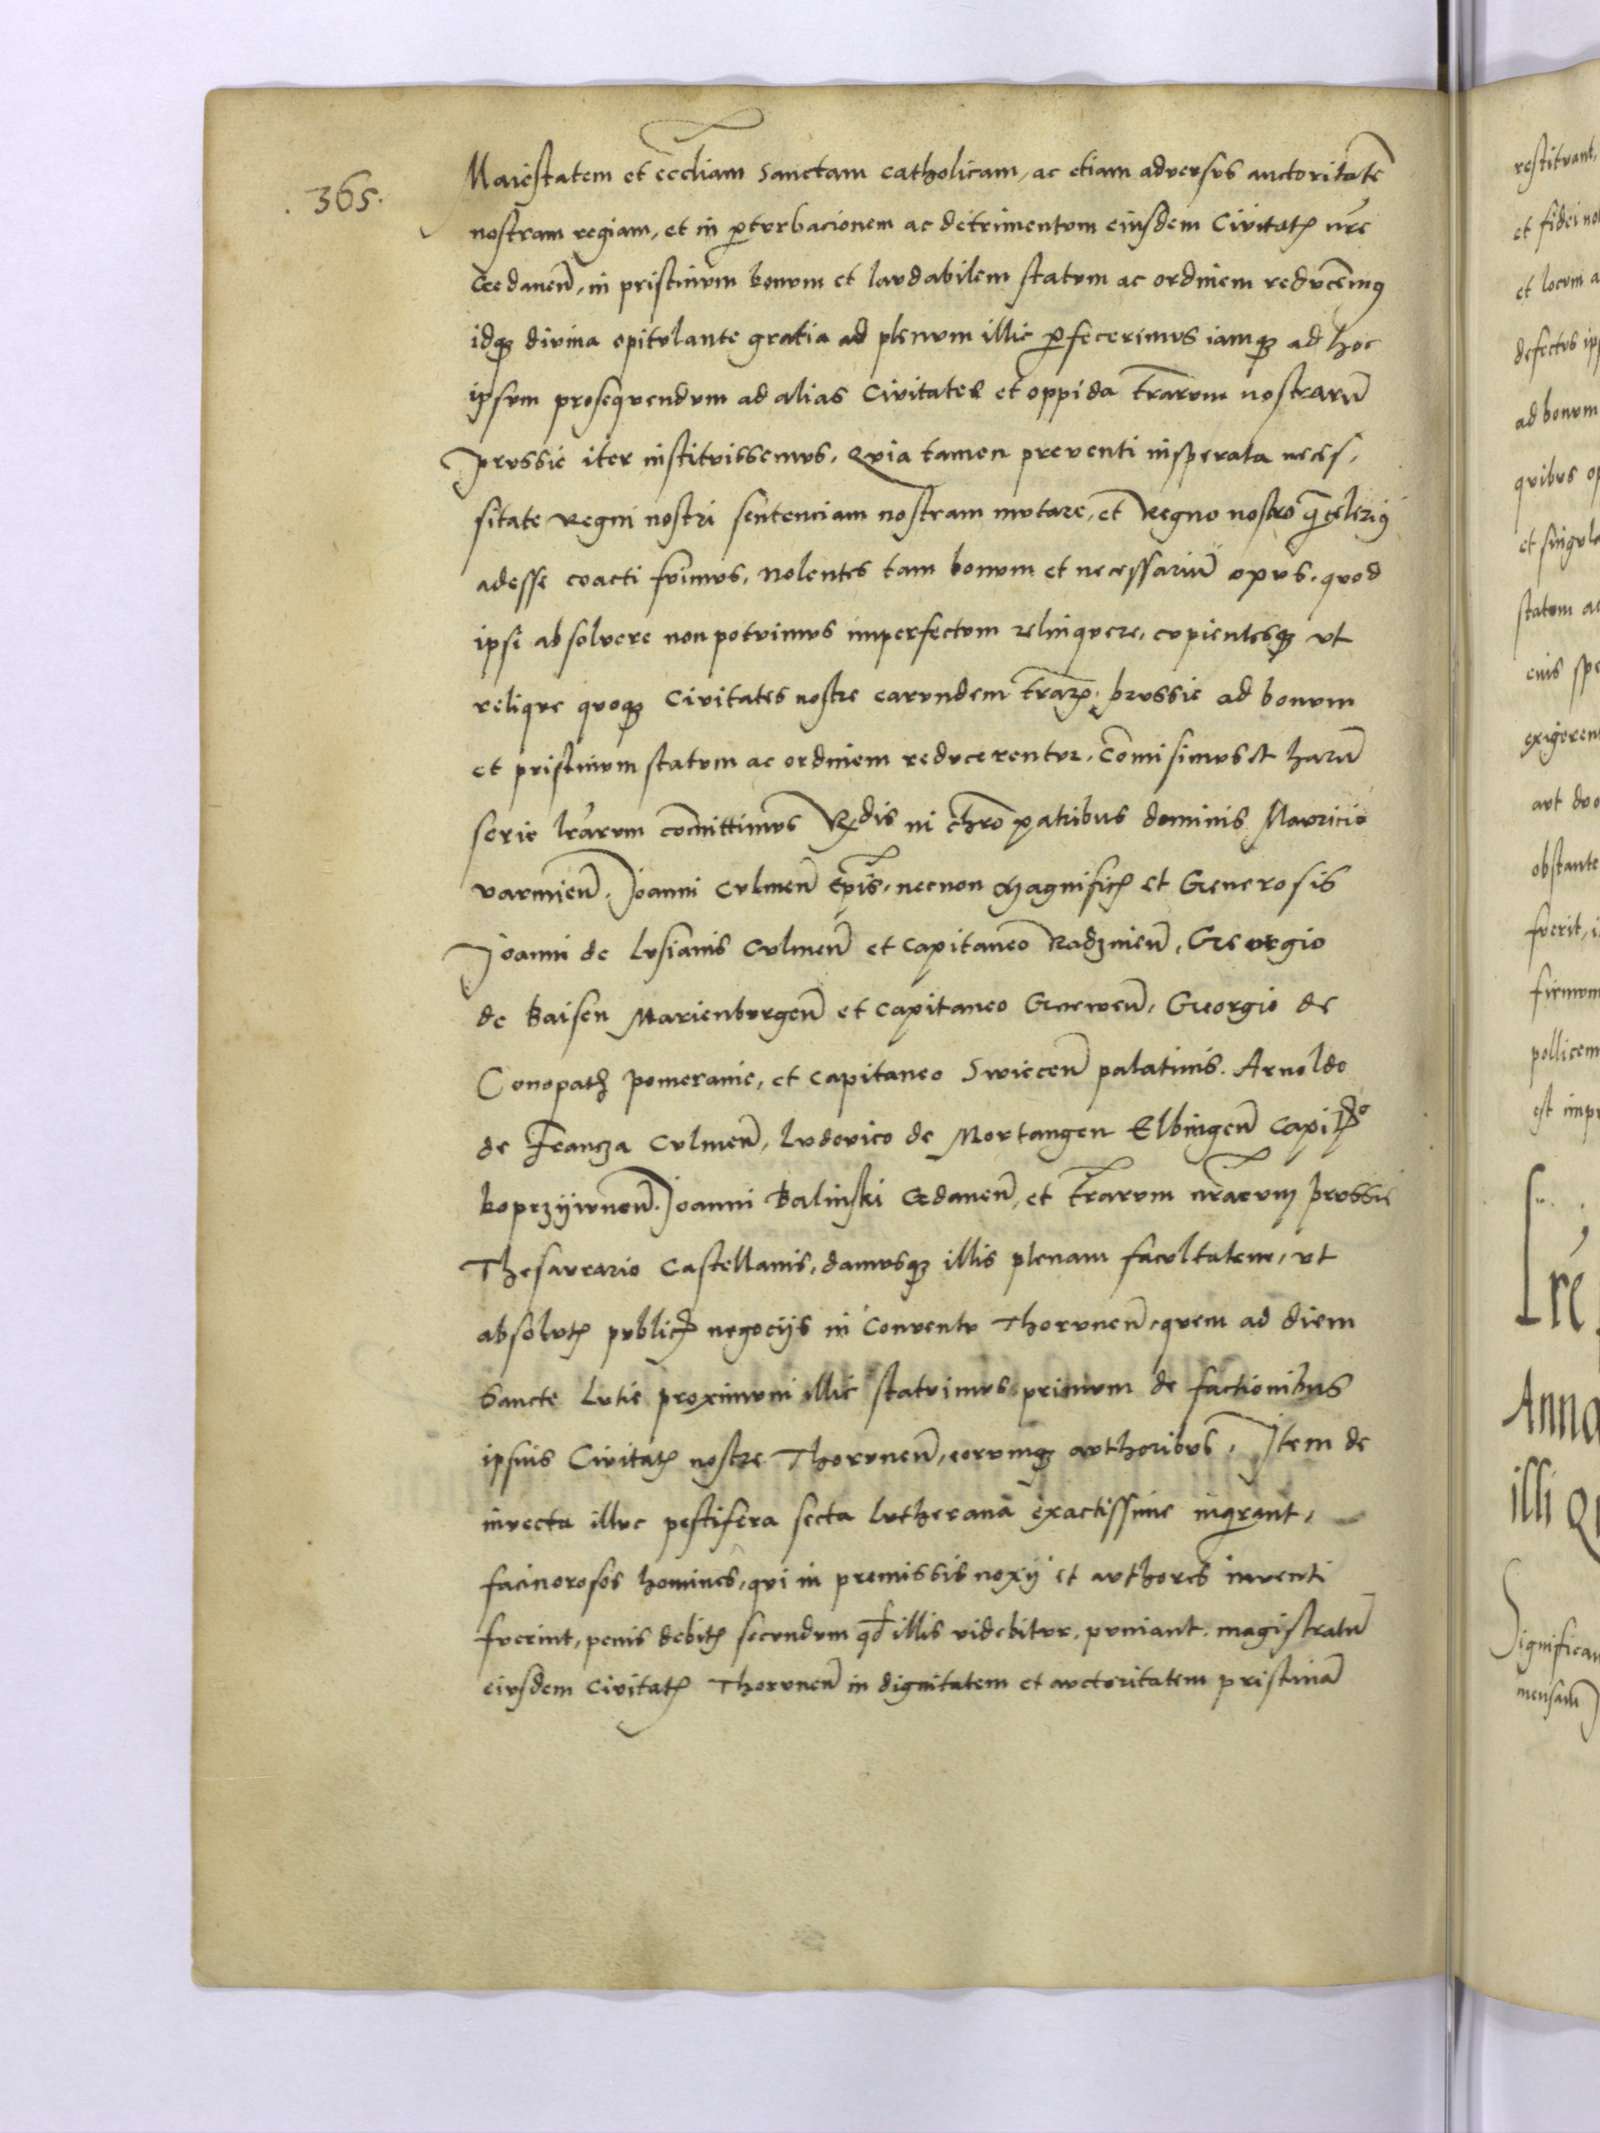 .365.
Maiestatem et eccliam Sanctam catholicam, ac etiam adversus auctoritatē
nostram regiam, et in pturbacionem ac detrimentum eiusdem Civitatꝭ nrē
Gedanen̄, in pristinum bonum et laudabilem statum ac ordinem reducemꝰ
idqꝫ divina opitulante gratia ad plenum illic pfecerimus iamqꝫ ad hoc
ipsum prosequendum ad alias Civitates et oppida trārum nostrarū
prussie iter instituissemus, Quia tamen preventi insperata neces,
sitate Regni nostri sentenciam nostram mutare, et Regno nostro qͣceleriꝰ
adesse coacti fuimus, Nolentes tam bonum et necessariū opus, quod
ipsi absolvere non potuimus imperfectum relinquere, cupientesqꝫ ut
relique quoqꝫ Civitates nostre earundem trārꝭ prussie ad bonum
et pristinum statum ac ordinem reducerentur. Com̄isimus et harū
serie lrārum com̄ittimus Rndis in chro patribus dominis Mauricio
varmien̄. Joanni Culmen̄ epis, necnon Magnificꝭ et Generosis
Joanni de Lusianis Culmen̄ et capitaneo Radzinen̄, Georgio
de Baisen Marienburgen̄ et capitaneo Gnewen̄, Georgio de
Conopath pomeranie, et capitaneo Swiecen̄ palatinis. Arnoldo
de Francza Culmen̄, Ludovico de Mortangen Elbingen̄ Capi
koprziiwnen̄. Joanni Balinski Gedanen̄, et trārum nrārum prussie
Thesaurario Castellanis, damusqꝫ illis plenam facultatem, ut
absolutꝭ publicꝭ negociis in Conventu Thorunen̄, quem ad diem
Sancte Lutie proximum illic statuimus, primum de factionibus
ipsius Civitatꝭ nostre Thorunen̄, eorumqꝫ authoribus, Item de
invecta illuc pestifera secta lutherana exactissime inqrant,
facinorosos homines, qui in premissis noxij et authores inventi
fuerint, penis debitꝭ secundum qd illis videbitur, puniant, magistratū
eiusdem Civitatꝭ Thorunen̄ in dignitatem et auctoritatem pristinā
restituant,
et fidei
et locum
defectus
ad bonum
quibus
et
statum
exigeren
aut
obstante
fuerit,
firmum
pollicem
est
Anno
illi
Significa
mensam